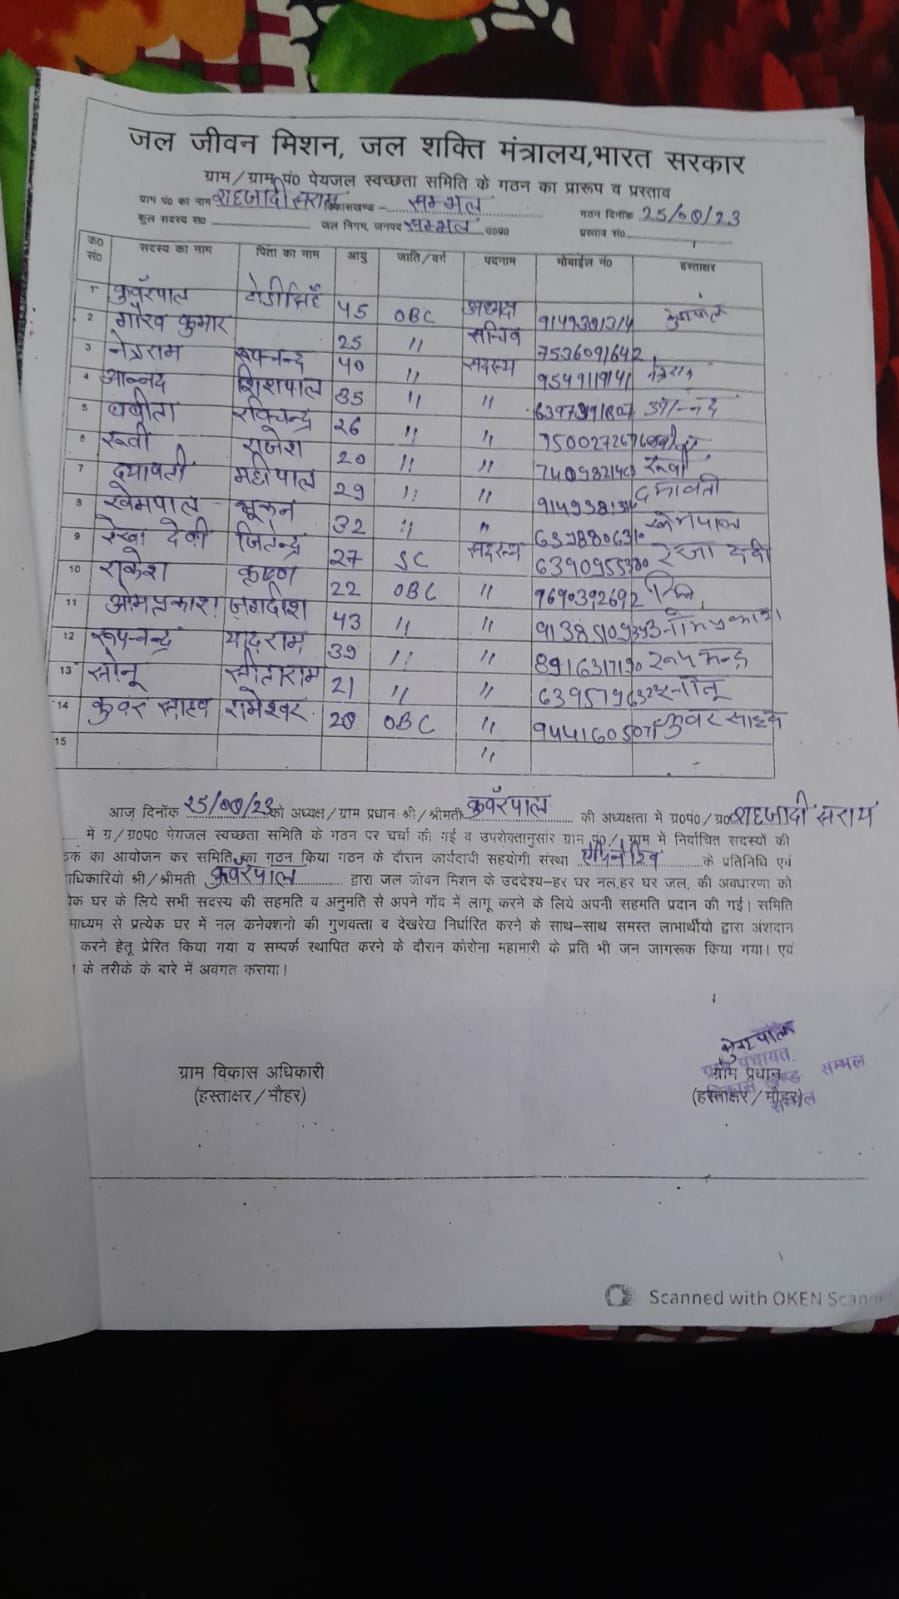 जल जीवन मिशन, जल शक्ति मंत्रालय,भारत सरकार
ग्राम/ग्राम पं० पेयजल स्वच्छता समिति के गठन का प्रारूप व प्रस्ताव
ग्राम पं० का नाम शहजादी सराय विकासखण्ड - सम्भल गठन दिनांक 25/08/23
कुल सदस्य स० जल निगम, जनपद सम्भल उ०प्र० प्रस्ताव सं०
क० सं० सदस्य का नाम पिता का नाम आयु जाति/वर्ग पदनाम मोबाईल नं० हस्ताक्षर
1 कुवँरपाल 45 OBC अध्यक्ष
2 गौरव कुमार 25 " सचिव 7536091642
3 नेत्रराम रूपचन्द्र 40 " सदस्य 9549119141
4 आनन्द शिशपाल 35 " "
5 बबीता 26 " "
6 रूबी राजेश 20 " " रूबी
7 दयावती महीपाल 29 " " दयावती
8 खेमपाल भूकन 32 " " खेमपाल
9 रेखा देवी जितेन्द्र 27 SC सदस्य रेखा देवी
10 राकेश कृष्ण 22 OBC " 9690392692
11 ओमप्रकाश जगदीश 43 " " ओमप्रकाश
12 रूपचन्द्र यादराम 39 " " रूपचन्द्र
13 सोनू सीताराम 21 " " सोनू
14 कुवर साहब रामेश्वर 28 OBC " कुवर साहब
15 "
आज दिनाँक 25/08/23 को अध्यक्ष/ग्राम प्रधान श्री/श्रीमती कुवँरपाल की अध्यक्षता में ग्र०पं०/ग्र० शहजादी सराय
में ग्र/ग्र०प० पेयजल स्वच्छता समिति के गठन पर चर्चा की गई व उपरोक्तानुसार ग्राम पं०/ग्राम में निर्वाचित सदस्यों की
ठक का आयोजन कर समिति का गठन किया गठन के दौरान कार्यदायी सहयोगी संस्था के प्रतिनिधि एवं
धिकारियों श्री/श्रीमती कुवँरपाल द्वारा जल जीवन मिशन के उददेश्य-हर घर नल,हर घर जल, की अवधारणा को
येक घर के लिये सभी सदस्य की सहमति व अनुमति से अपने गाँव में लागू करने के लिये अपनी सहमति प्रदान की गई। समिति
माध्यम से प्रत्येक घर में नल कनेक्शनो की गुणवत्ता व देखरेख निर्धारित करने के साथ-साथ समस्त लाभार्थीयो द्वारा अंशदान
करने हेतू प्रेरित किया गया व सम्पर्क स्थापित करने के दौरान कोरोना महामारी के प्रति भी जन जागरूक किया गया। एवं
के तरीके के बारे में अवगत कराया।
कुवरपाल
ग्राम पंचायत
ग्राम विकास अधिकारी ग्राम प्रधान
विकास खण्ड सम्भल
(हस्ताक्षर/मौहर) (हस्ताक्षर/मौहर)
Scanned with OKEN Scanner